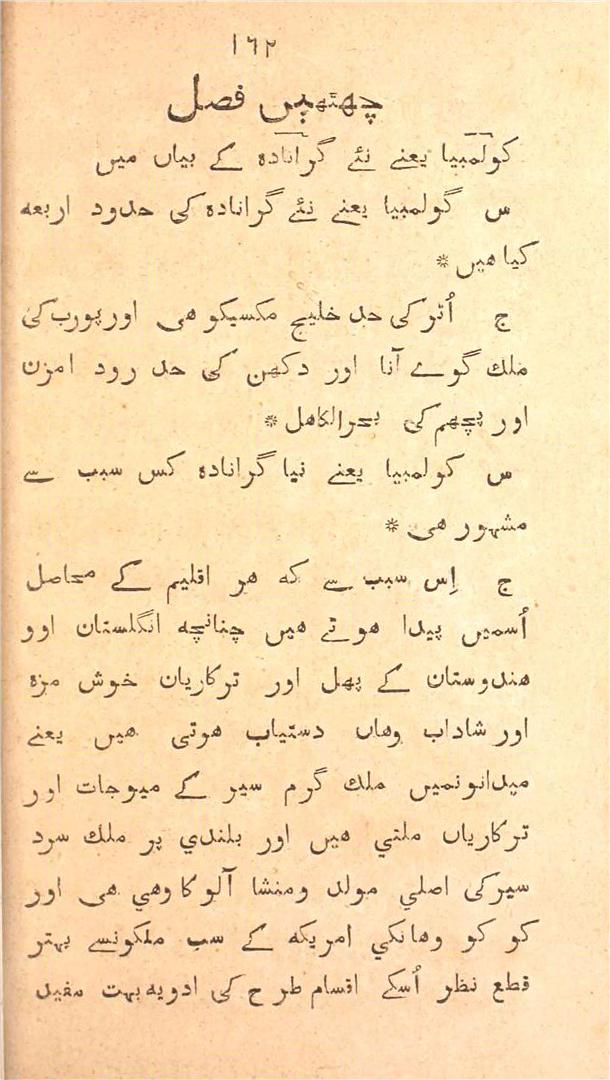 ١٦٢
چهتهيں فصل
کولمبیا یعنے نئے گرانادہ کے بیاں میں
س گولمبیا یعنے نئے گرانادہ کی حدود اربعہ
کیا هیں *
ج اُتر کی حد خلیج مکسیکو هی اور پورب کی
ملك گوے آنا اور دکهن کی حد رود امزن
اور پچهم کی بحر الکاهل *
س کولمبیا یعنے نیا گرانادہ کس سبب سے
مشہور هی *
ج اِس سبب سے که هر اقلیم کے محاصل
اُسمیں پیدا هوتے هیں چنانچه انگلستان اور
هندوستان کے پهل اور ترکاریان خوش مزہ
اور شاداب وهاں دستیاب هوتی هیں یعنے
میدانونمیں ملك گرم سیر کے میوجات اور
ترکاریاں ملتي هیں اور بلندي پر ملك سرد
سیر کی اصلي مولد ومنشا آلو کا وهي هی اور
کو کو وهانکي امریکه کے سب ملکونسے بہتر
قطع نظر اُسکے اقسام طرح کی ادویه بہت مفید